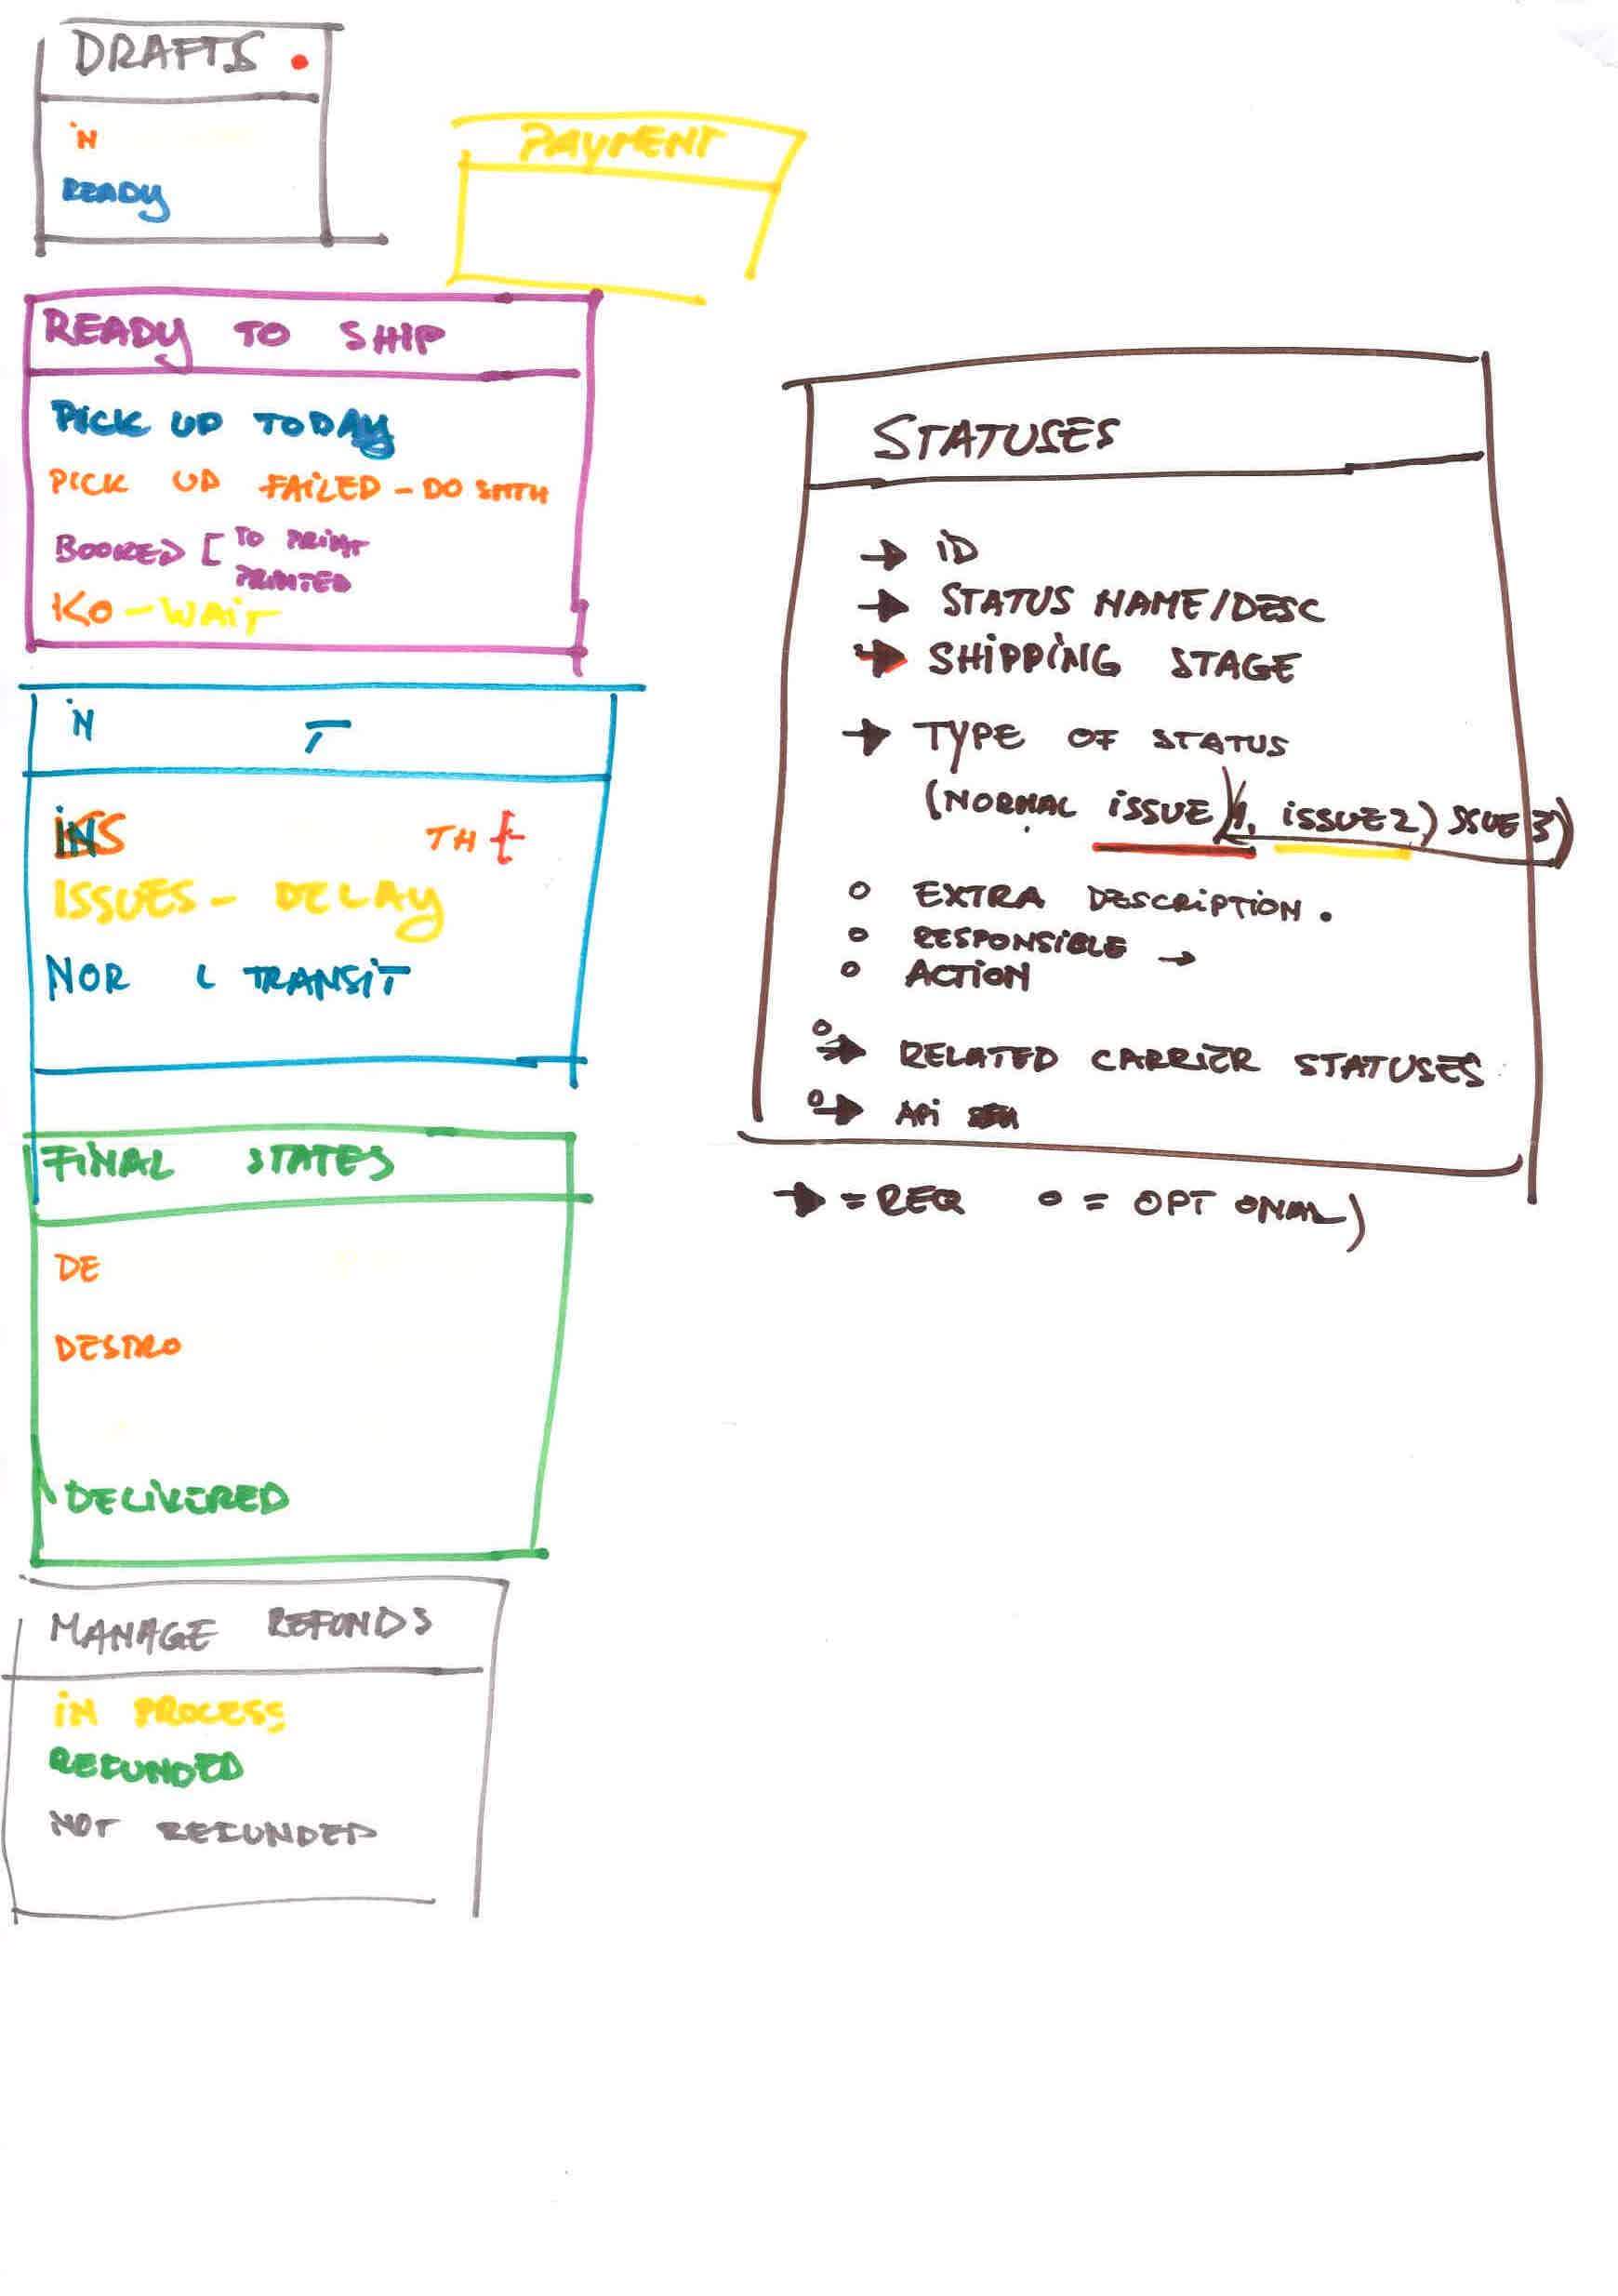 DRAFTS
iN
READY
PAYMENT
READY TO SHIP
PICK UP TODAY
PICK UP FAILED - DO SMTH
BOOKED [ TO PRINT
PRINTED
KO - WAIT
iN
TH
ISSUES - DELAY
NOR L TRANSIT
FINAL STATES
DE
DESTRO
DELIVERED
MANAGE REFUNDS
IN PROCESS
REFUNDED
NOT REFUNDED
STATUSES
→ ID
→ STATUS NAME/DESC
→ SHIPPING STAGE
→ TYPE OF STATUS
(NORMAL ISSUE 1, ISSUE 2) SSUE 3)
o EXTRA DESCRIPTION.
o RESPONSIBLE →
o ACTION
o→ RELATED CARRIER STATUSES
o→ API
→ = REQ o = OPT ONAL)